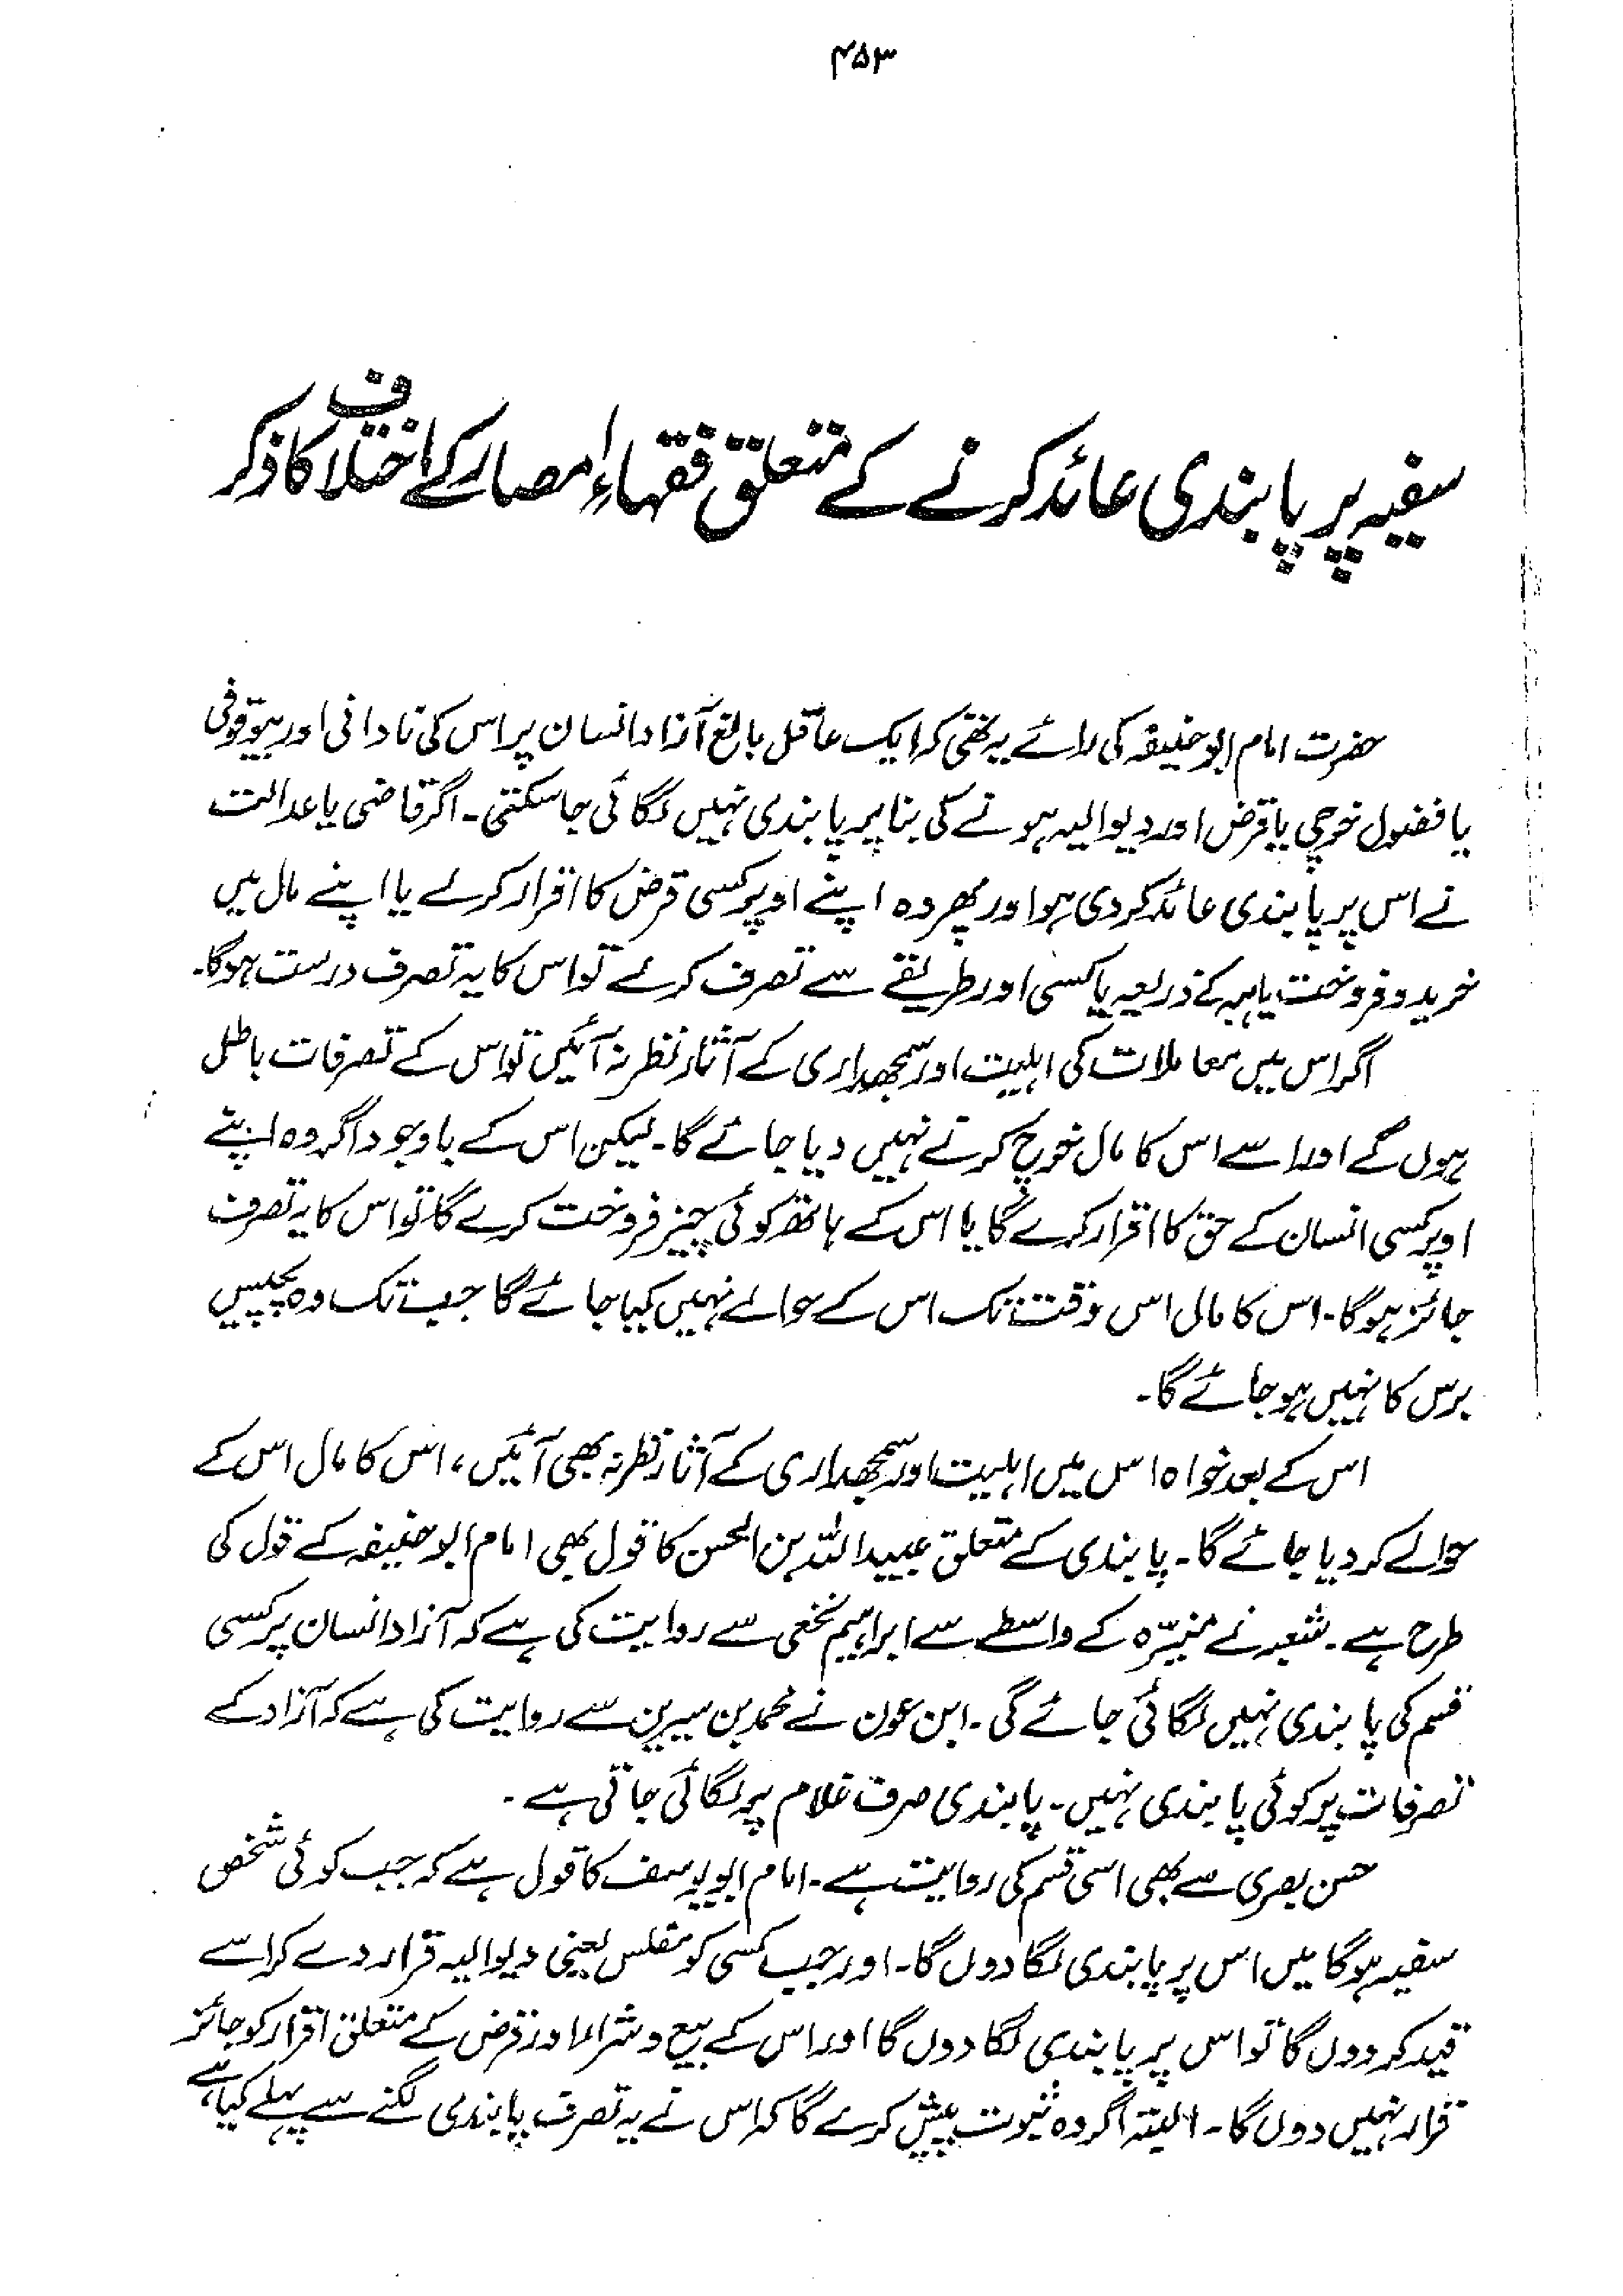 ۴۵۳
سفیہ پر پابندی عائد کرنے کے متعلق فقہاء امصار کے اختلاف کا ذکر
حضرت امام ابوحنیفہ کی رائے یہ تھی کہ ایک عاقل بالغ آزاد انسان پر اس کی نادانی اور بیوقوفی
یا فضول خرچی یا قرض اور دیوالیہ ہونے کی بنا پر پابندی نہیں لگائی جا سکتی۔ اگر قاضی یا عدالت
نے اس پر پابندی عائد کر دی ہو اور پھر وہ اپنے اوپر کسی قرض کا اقرار کر لے یا اپنے مال میں
خرید و فروخت یا ہبہ کے ذریعہ یا کسی اور طریقے سے تصرف کر لے تو اس کا یہ تصرف درست ہوگا۔
اگر اس میں معاملات کی اہلیت اور سمجھداری کے آثار نظر نہ آئیں تو اس کے تصرفات باطل
ہوں گے اور اسے اس کا مال خرچ کرنے نہیں دیا جائے گا۔ لیکن اس کے باوجود اگر وہ اپنے
اوپر کسی انسان کے حق کا اقرار کرے گا یا اس کے ہاتھ کوئی چیز فروخت کرے گا تو اس کا یہ تصرف
جائز ہوگا۔ اس کا مال اس وقت تک اس کے حوالے نہیں کیا جائے گا جب تک وہ پچیس
برس کا نہیں ہو جائے گا۔
اس کے بعد خواہ اس میں اہلیت اور سمجھداری کے آثار نظر نہ بھی آئیں، اس کا مال اس کے
حوالے کر دیا جائے گا۔ پابندی کے متعلق عبیداللہ بن الحسن کا قول بھی امام ابوحنیفہ کے قول کی
طرح ہے۔ شعبہ نے مغیرّہ کے واسطے سے ابراہیم نخعی سے روایت کی ہے کہ آزاد انسان پر کسی
قسم کی پابندی نہیں لگائی جائے گی۔ ابن عون نے محمد بن سیرین سے روایت کی ہے کہ آزاد کے
تصرفات پر کوئی پابندی نہیں۔ پابندی صرف غلام پر لگائی جاتی ہے۔
حسن بصری سے بھی اسی قسم کی روایت ہے۔ امام ابویوسف کا قول ہے کہ جب کوئی شخص
سفیہ ہوگا میں اس پر پابندی لگا دوں گا۔ اور جب کسی کو مفلس یعنی دیوالیہ قرار دے کر اسے
قید کر دوں گا تو اس پر پابندی لگا دوں گا اور اس کے بیع و شراء اور قرض کے متعلق اقرار کو جائز
قرار نہیں دوں گا۔ البتہ اگر وہ ثبوت پیش کرے گا کہ اس نے یہ تصرف پابندی لگنے سے پہلے کیا ہے